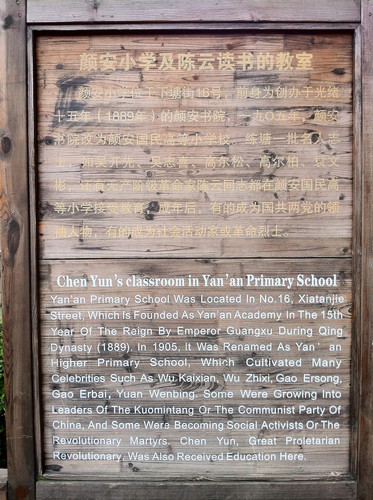 颜安小学及陈云读书的教室
颜安小学位于下塘街16号，前身为创办于光绪
十五年（1889年）的颜安书院，一九〇五年，颜安
书院改为颜安国民高等小学校，练塘一批名人志
士，如吴开先、吴志喜、高尔松、高尔柏、袁文
彬，还有无产阶级革命家陈云同志都在颜安国民高
等小学接受教育，成年后，有的成为国共两党的领
袖人物，有的成为社会活动家或革命烈士。
Chen Yun's classroom in Yan'an Primary School
Yan'an Primary School Was Located In No.16, Xiatanjie
Street, Which Is Founded As Yan'an Academy In The 15th
Year Of The Reign By Emperor Guangxu During Qing
Dynasty (1889). In 1905, It Was Renamed As Yan' an
Higher Primary School, Which Cultivated Many
Celebrities Such As Wu Kaixian, Wu Zhixi, Gao Ersong,
Gao Erbai, Yuan Wenbing. Some Were Growing Into
Leaders Of The Kuomintang Or The Communist Party Of
China, And Some Were Becoming Social Activists Or The
Revolutionary Martyrs. Chen Yun, Great Proletarian
Revolutionary, Was Also Received Education Here.